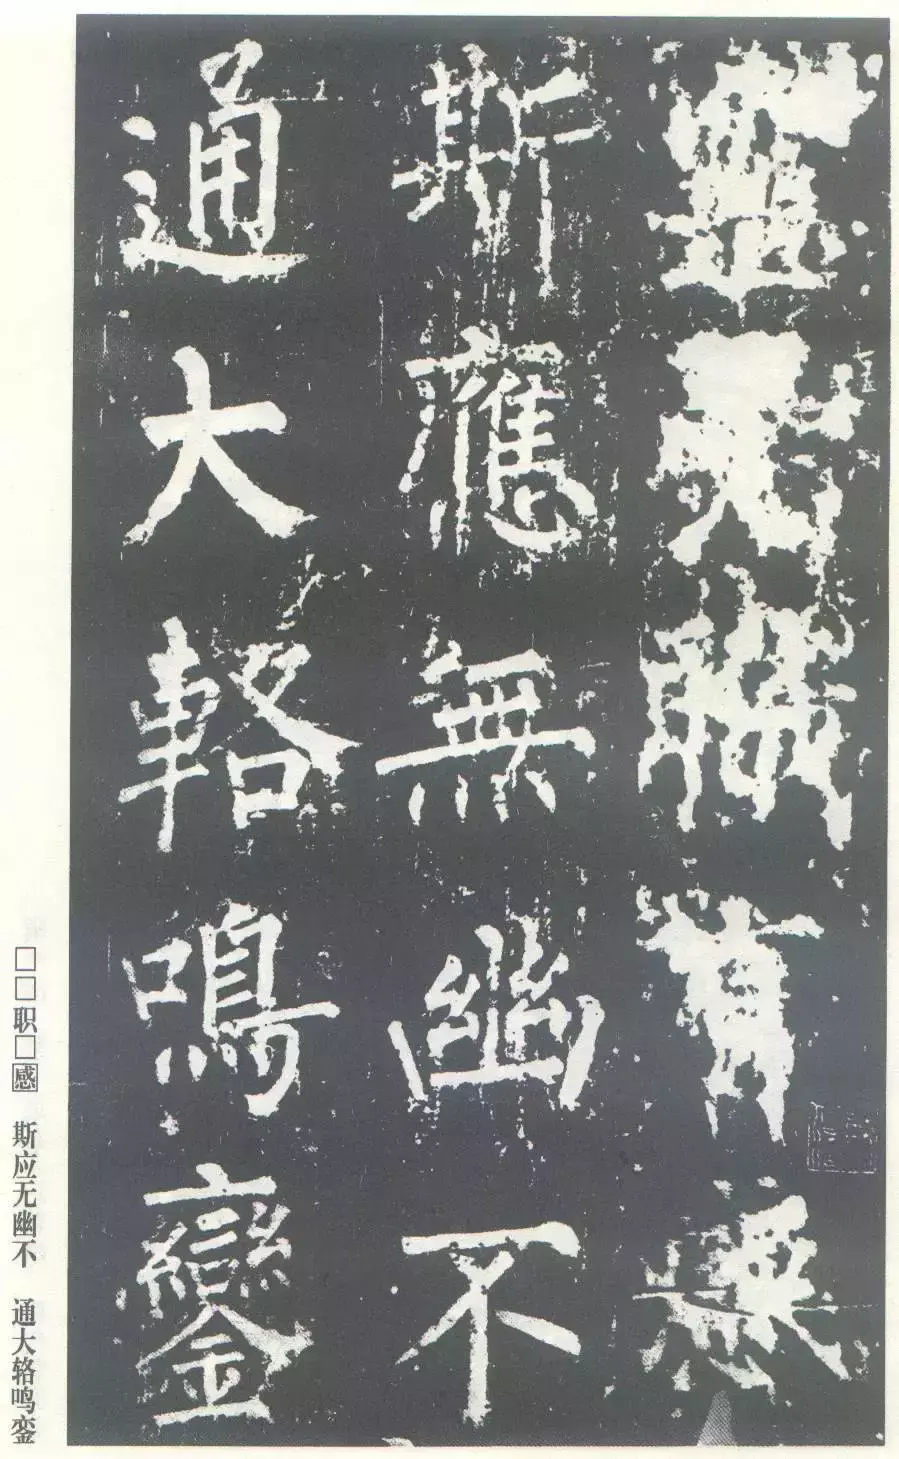 職
斯應無幽不
通大輅鳴鑾
□□职□感 斯应无幽不 通大辂鸣銮